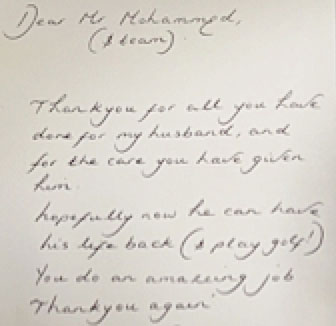 Dear Mr Mohammed,
(& team)
Thankyou for all you have
done for my husband, and
for the care you have given
him.
hopefully now he can have
his life back (& play golf!)
You do an amazeing job
Thankyou again